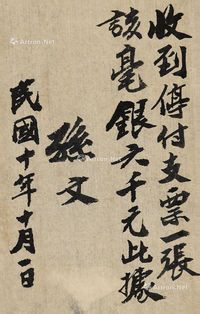 收到停付支票一張
該毫銀六千元此據
孫文
民國十年十月一日